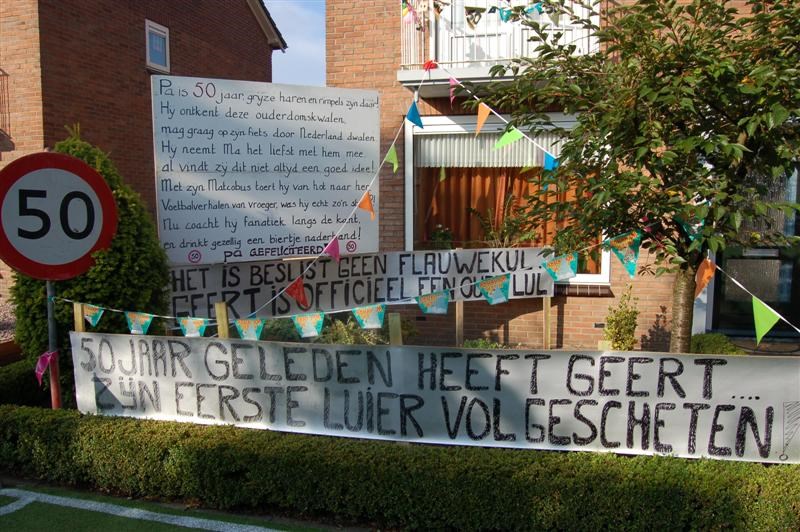 50
Pa is 50 jaar, gryze haren en rimpels zyn daar!
Hy ontkent deze ouderdomskwalen,
mag graag op zyn fiets door Nederland dwalen.
Hy neemt Ma het liefst met hem mee,
al vindt zy dit niet altyd een goed idee!
Met zyn Matcobus toert hy van hot naar her
Voetbalverhalen van vroeger, was hy echt zo'n
Nu coacht hy fanatiek langs de kant,
en drinkt gezellig een biertje naderhand!
50 PA GEFELICITEERD! 50
HET IS BESLIST GEEN FLAUWEKUL
GEERT IS OFFICIEEL EEN OUWE LUL
50 JAAR GELEDEN HEEFT GEERT....
ZIJN EERSTE LUIER VOLGESCHETEN!